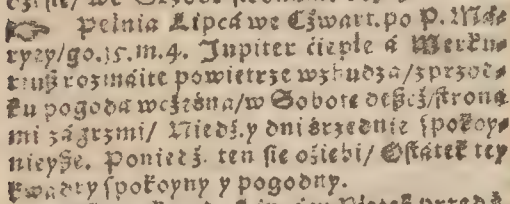 ☞ Pełnia Lipca we Czwart. po P. Má-
ryey/go.15.m.4. Jupiter ćiepłe á Merku-
ryuß rozmáite powietrze wzbudza/z przod-
ku pogodá wcżeśna/w Sobotę deßcż/ſtroná
mi zágrzmi/ Niedź. y dni śrzednie ſpokoy-
nieyße. Poniedź. ten ſie oźiębi/ Oſtátek tey
kwádry ſpokoyny y pogodny.